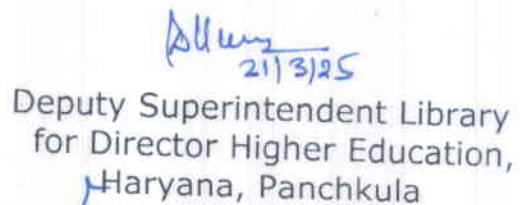 21/3/25
Deputy Superintendent Library
for Director Higher Education,
Haryana, Panchkula